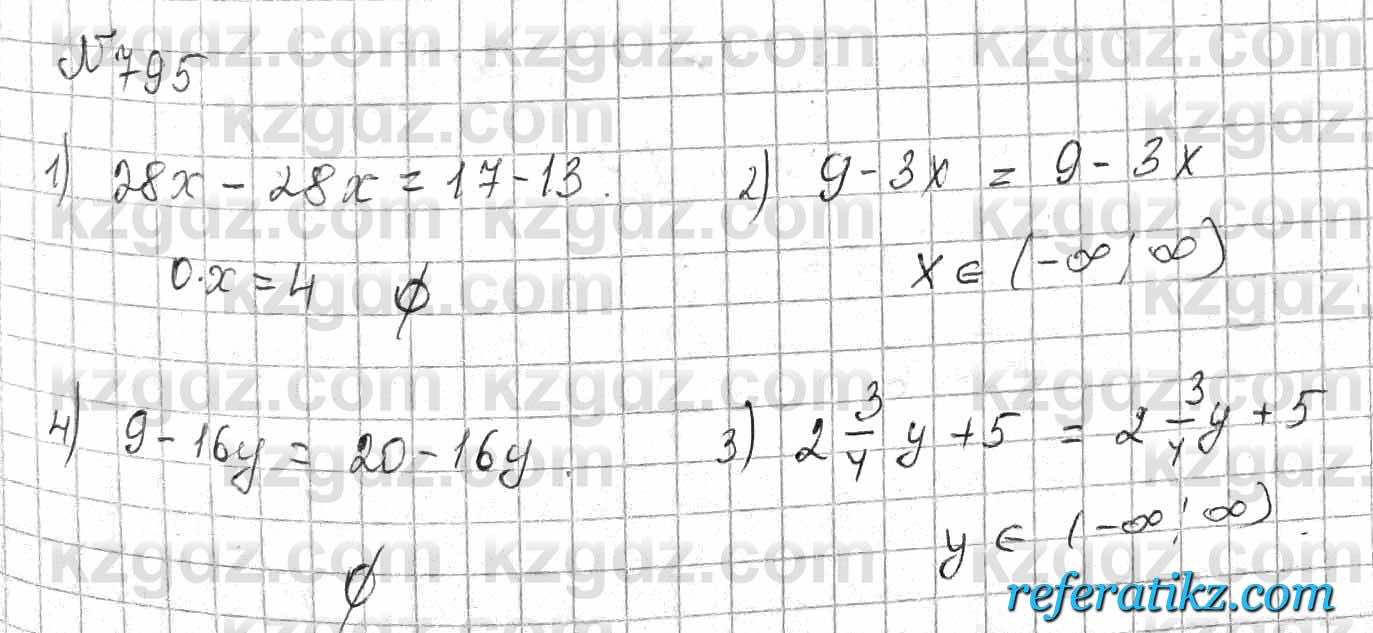 № 795
1) 28x - 28x = 17 - 13.
0·x = 4 ∅
2) 9 - 3x = 9 - 3x
x ∈ (-∞; ∞)
4) 9 - 16y = 20 - 16y.
∅
3) 2 3/4 y + 5 = 2 3/4 y + 5
y ∈ (-∞; ∞).
kzgdz.com
referatikz.com